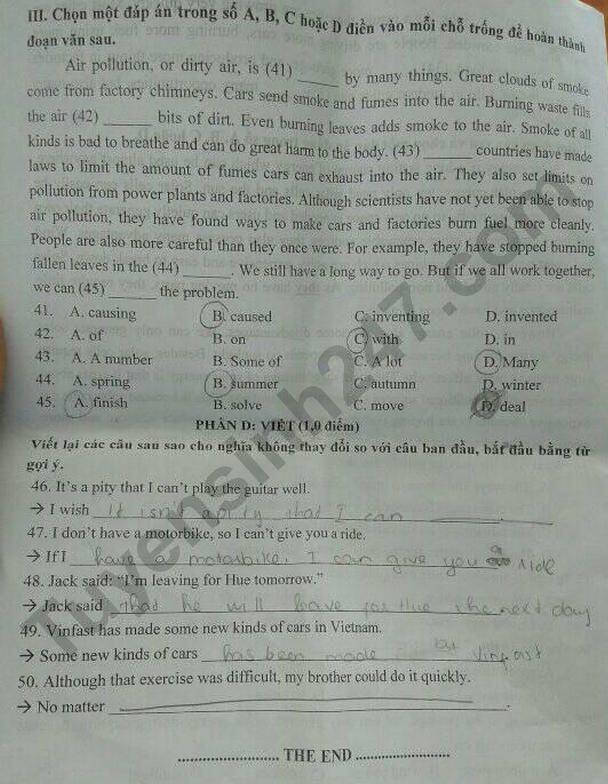 III. Chọn một đáp án trong số A, B, C hoặc D điền vào mỗi chỗ trống để hoàn thành
đoạn văn sau.
Air pollution, or dirty air, is (41) ______ by many things. Great clouds of smoke
come from factory chimneys. Cars send smoke and fumes into the air. Burning waste fills
the air (42) ______ bits of dirt. Even burning leaves adds smoke to the air. Smoke of all
kinds is bad to breathe and can do great harm to the body. (43) ______ countries have made
laws to limit the amount of fumes cars can exhaust into the air. They also set limits on
pollution from power plants and factories. Although scientists have not yet been able to stop
air pollution, they have found ways to make cars and factories burn fuel more cleanly.
People are also more careful than they once were. For example, they have stopped burning
fallen leaves in the (44) ______. We still have a long way to go. But if we all work together,
we can (45) ______ the problem.
41. A. causing B. caused C. inventing D. invented
42. A. of B. on C. with D. in
43. A. A number B. Some of C. A lot D. Many
44. A. spring B. summer C. autumn D. winter
45. A. finish B. solve C. move D. deal
PHẦN D: VIẾT (1,0 điểm)
Viết lại các câu sau sao cho nghĩa không thay đổi so với câu ban đầu, bắt đầu bằng từ
gợi ý.
46. It's a pity that I can't play the guitar well.
→ I wish it isn't a pity that I can
47. I don't have a motorbike, so I can't give you a ride.
→ If I have a motorbike, I can give you a ride
48. Jack said: “I'm leaving for Hue tomorrow.”
→ Jack said that he will leave for Hue the next day
49. Vinfast has made some new kinds of cars in Vietnam.
→ Some new kinds of cars has been made by Vinfast
50. Although that exercise was difficult, my brother could do it quickly.
→ No matter ______.
THE END
Tuyensinh247.com